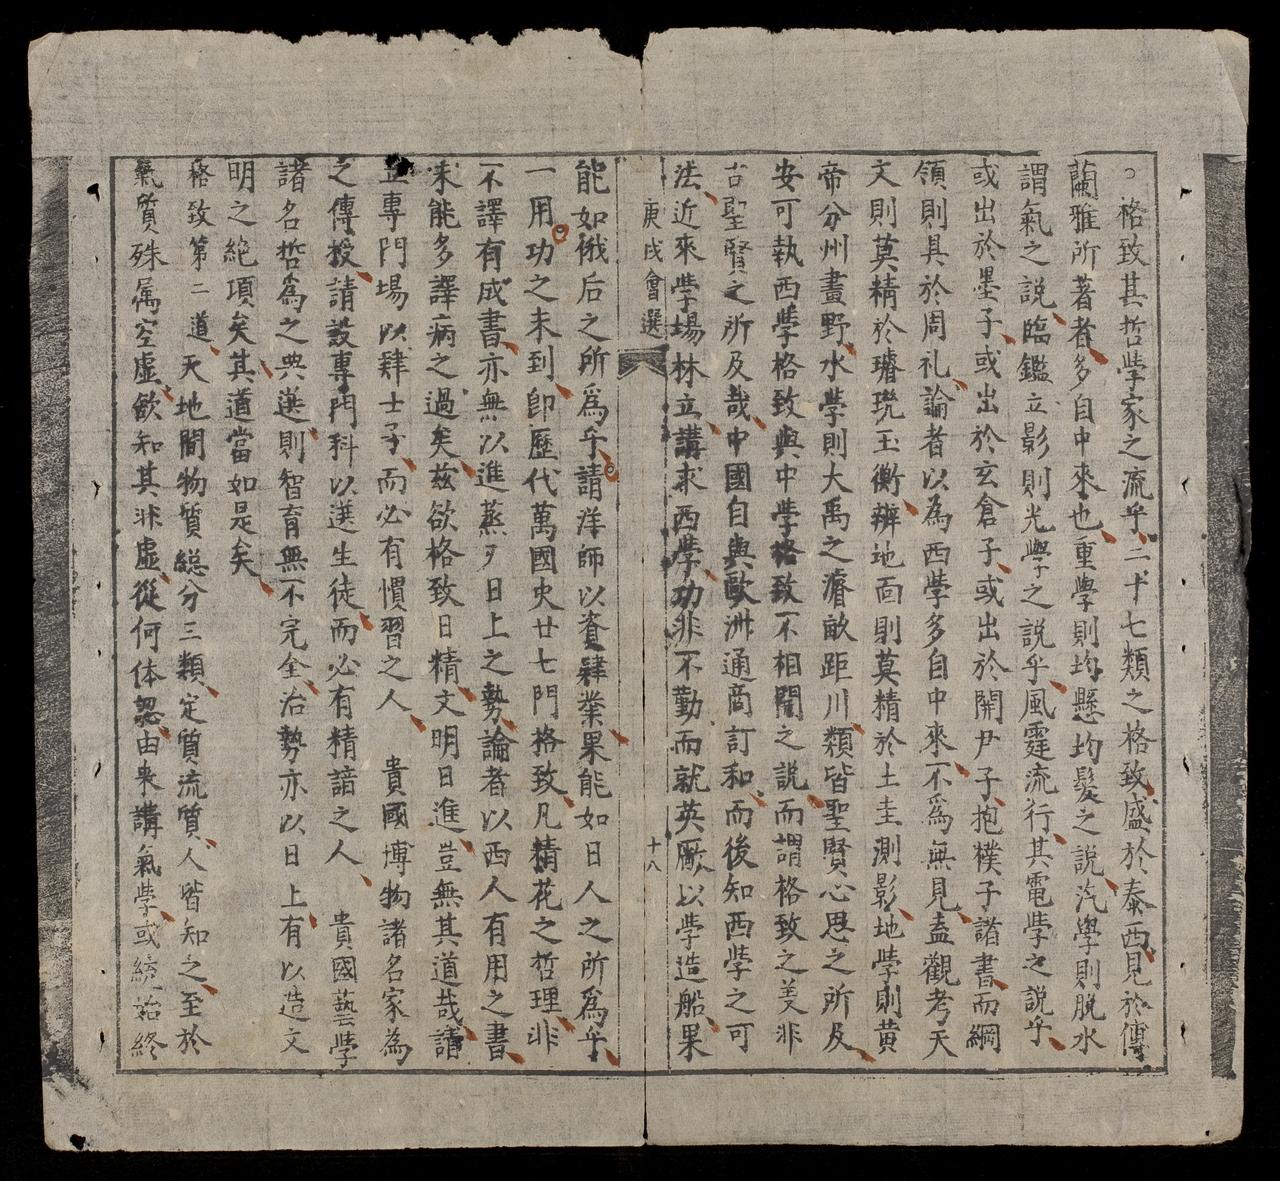 ○格致其哲學家之流乎二十七類之格致盛於泰西見於傅
蘭雅所著者多自中來也重學則均懸均髮之說汽學則脫水
謂氣之說臨鑑立影則光學之說乎風霆流行其電學之說乎
或出於墨子或出於亢倉子或出於關尹子抱樸子諸書而綱
領則具於周礼論者以為西學多自中來不爲無見盍觀考天
文則莫精於璿璣玉衡辨地面則莫精於土圭測影地學則黃
帝分州畫野水學則大禹之濬畝距川類皆聖賢心思之所及
安可執西學格致與中學格致不相關之說而謂格致之美非
古聖賢之所及哉中國自與歐洲通商訂和而後知西學之可
法近來學場林立講求西學功非不勤而就英厰以學造船果
庚戌會選
十八
能如俄后之所爲乎請洋師以資肆業果能如日人之所爲乎
一用功之未到卽歷代萬國史廿七門格致凡精花之哲理非
不譯有成書亦無以進蒸歹日上之勢論者以西人有用之書
未能多譯病之過矣茲欲格致日精文明日進豈無其道哉請
立專門場以肆士子而必有慣習之人　貴國博物諸名家為
之傳授請設專門科以選生徒而必有精諳之人　貴國藝學
諸名哲為之典選則智育無不完全治勢亦以日上有以造文
明之絶項矣其道當如是矣
格致第二道天地間物質總分三類定質流質人皆知之至於
氣質殊属空虛欲知其非虛從何体認由來講氣學或統始終